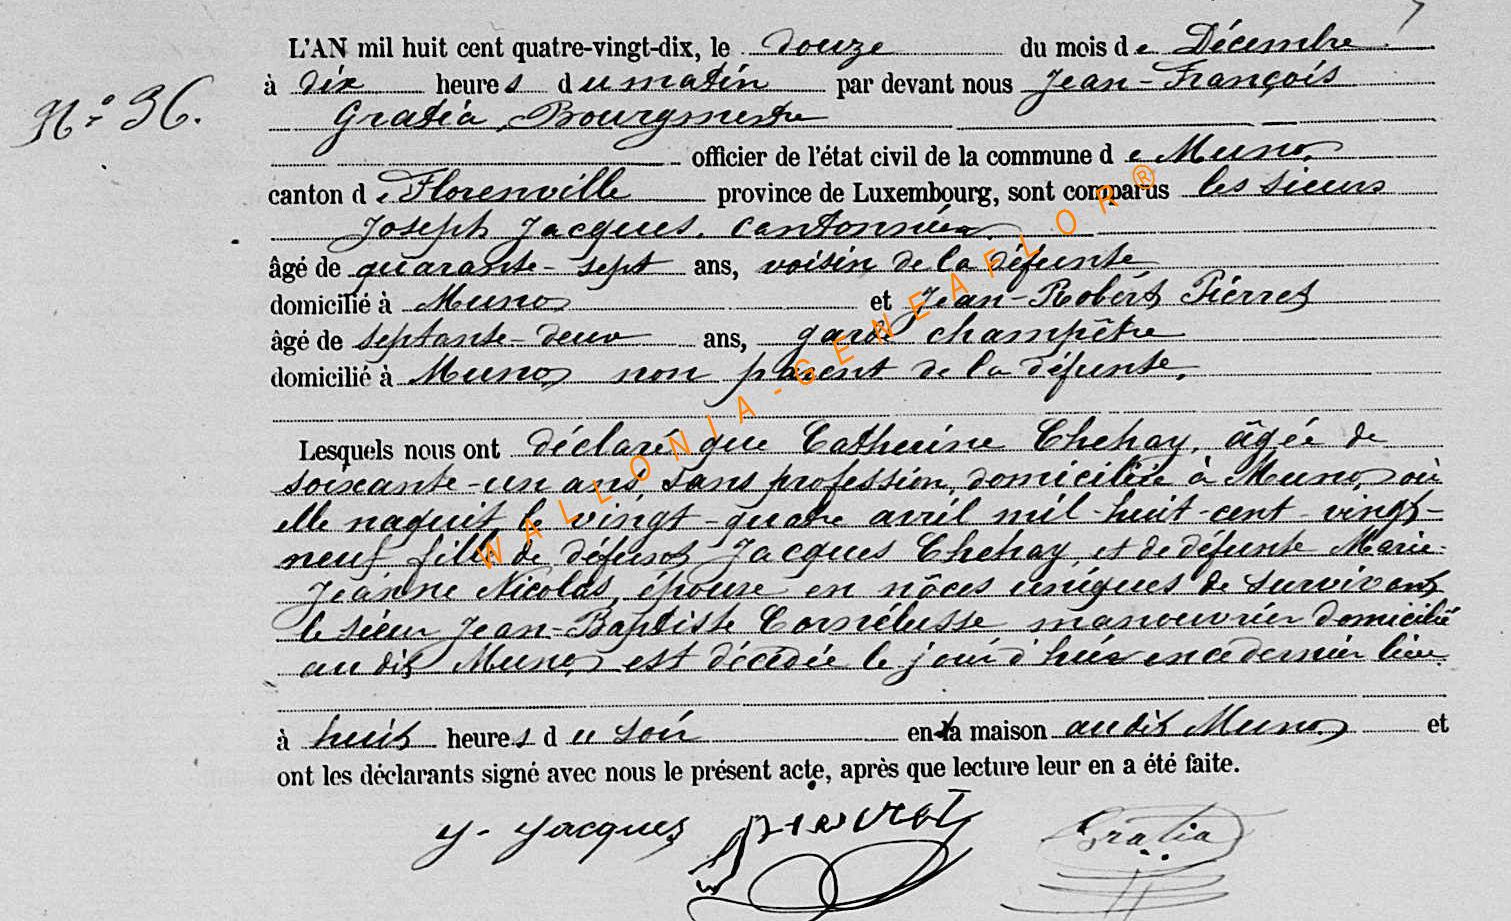 L'AN mil huit cent quatre-vingt-dix, le douze du mois de Décembre
à dix heures du matin par devant nous Jean-François
N° 36.
Gratia, Bourgmestre
officier de l'état civil de la commune de Muno,
canton de Florenville province de Luxembourg, sont comparus les sieurs
Joseph Jacques, cantonnier,
âgé de quarante-sept ans, voisin de la défunte
domicilié à Muno et Jean-Robert Pierret
âgé de septante-deux ans, garde champêtre
domicilié à Muno non parent de la défunte,
Lesquels nous ont déclaré que Catherine Chehay, âgée de
soixante-un ans, sans profession, domiciliée à Muno, où
elle naquit le vingt-quatre avril mil-huit-cent-vingt-
neuf fille de défunt Jacques Chehay, et de défunte Marie-
Jeanne Nicolas, épouse en nôces uniques de survivant
le sieur Jean-Baptiste Cornélusse manouvrier domicilié
au dit Muno, est décédée le jour d'hier en ce dernier lieu
à huit heures du soir en la maison au dit Muno et
ont les déclarants signé avec nous le présent acte, après que lecture leur en a été faite.
J. Jacques Pierret Gratia
WALLONIA-GENEAFLOR®